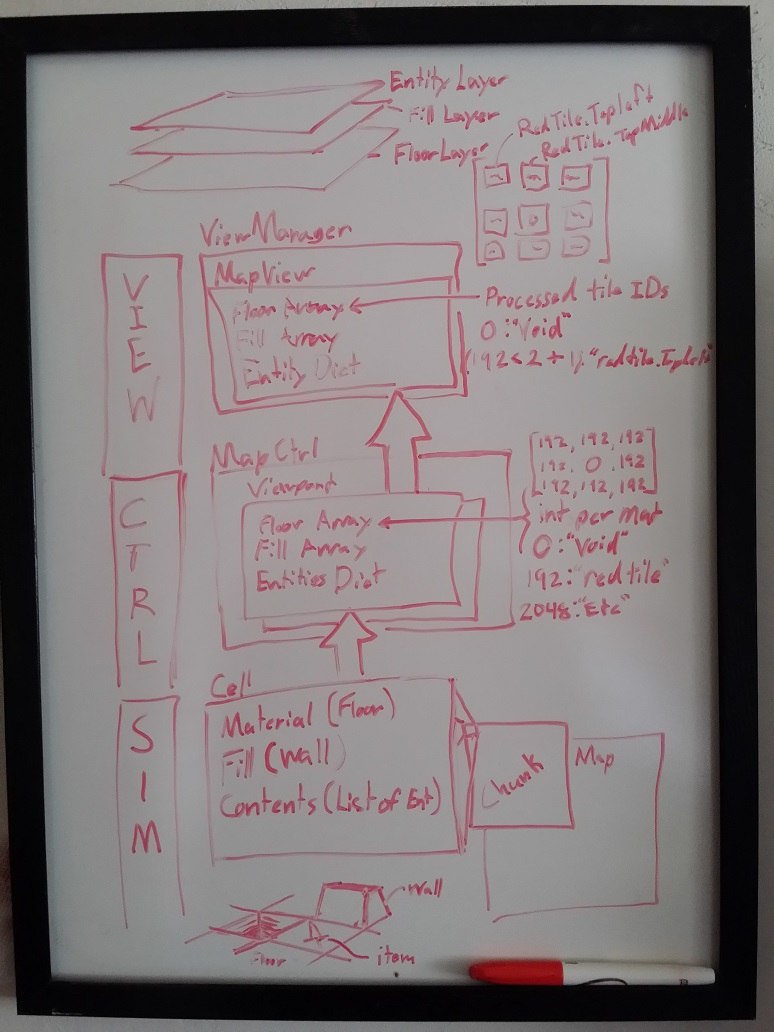 Entity Layer
Fill Layer
Floor Layer
RedTile.TopLeft
RedTile.TopMiddle
ViewManager
MapView
Floor Array
Fill Array
Entity Dict
Processed tile IDs
0:"Void"
VIEW
MapCtrl
Viewport
Floor Array
Fill Array
Entities Dict
[192, 192, 192
192, 0, 192
192, 192, 192]
int per mat
0:"Void"
192:"redtile"
2048:"Etc"
CTRL
Cell
Material (Floor)
Fill (Wall)
Contents (List of Ent)
Chunk
Map
SIM
Wall
item
Floor